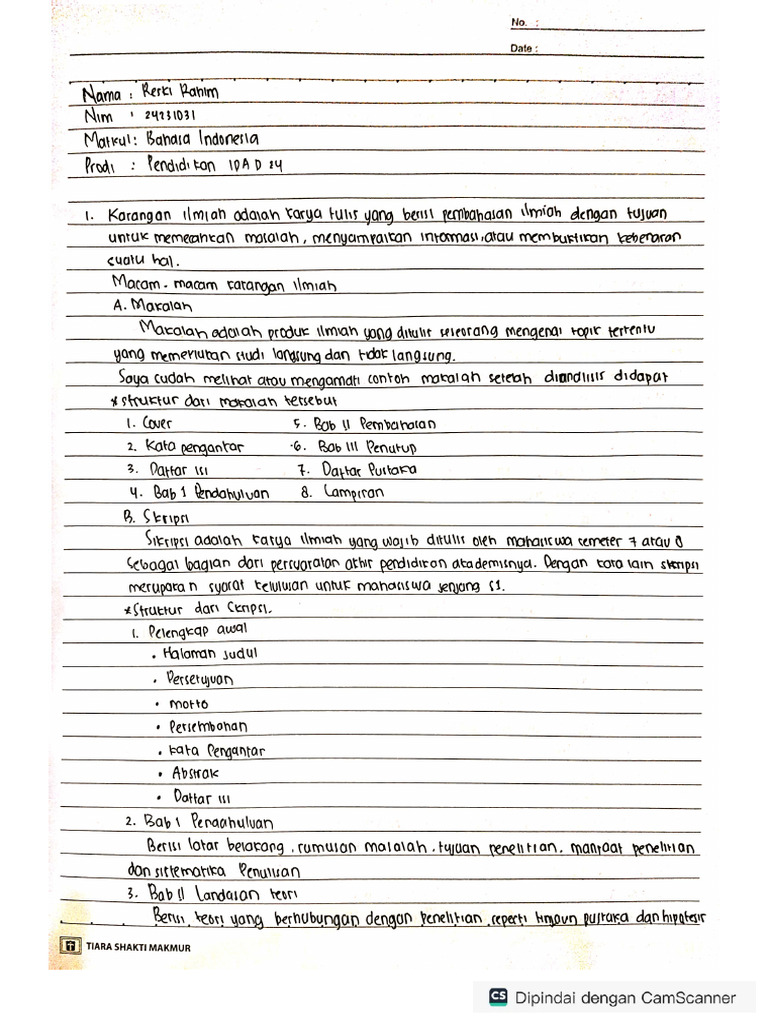 No. :
Date :
Nama : Rerki Rahim
Nim : 24231031
Matkul : Bahasa Indonesia
Prodi : Pendidikan IPA D 24
1. Karangan ilmiah adalah karya tulis yang berisi pembahasan ilmiah dengan tujuan
untuk memecahkan masalah, menyampaikan informasi, atau membuktikan kebenaran
suatu hal.
Macam-macam karangan ilmiah
A. Makalah
Makalah adalah produk ilmiah yang ditulis seseorang mengenai topik tertentu
yang memerlukan studi langsung dan tidak langsung.
Saya sudah melihat atau mengamati contoh makalah setelah dianalisis didapat
*struktur dari makalah tersebut
1. Cover 5. Bab II Pembahasan
2. Kata pengantar 6. Bab III Penutup
3. Daftar isi 7. Daftar Pustaka
4. Bab 1 Pendahuluan 8. Lampiran
B. Skripsi
Sikripsi adalah karya ilmiah yang wajib ditulis oleh mahasiswa semeter 7 atau 8
Sebagai bagian dari persyaratan akhir pendidikan akademisnya. Dengan kata lain skripsi
merupakan syarat kelulusan untuk mahasiswa jenjang S1.
*Struktur dari Skripsi.
1. Pelengkap awal
• Halaman Judul
• Persetujuan
• motto
• Persembahan
• kata Pengantar
• Abstrak
• Daftar isi
2. Bab 1 Pendahuluan
Berisi latar belakang, rumusan masalah, tujuan penelitian, manfaat penelitian
dan sistematika Penulisan
3. Bab II Landasan teori
Berisi teori yang berhubungan dengan penelitian, seperti tinjaun pustaka dan hipotesis
TIARA SHAKTI MAKMUR
CS Dipindai dengan CamScanner